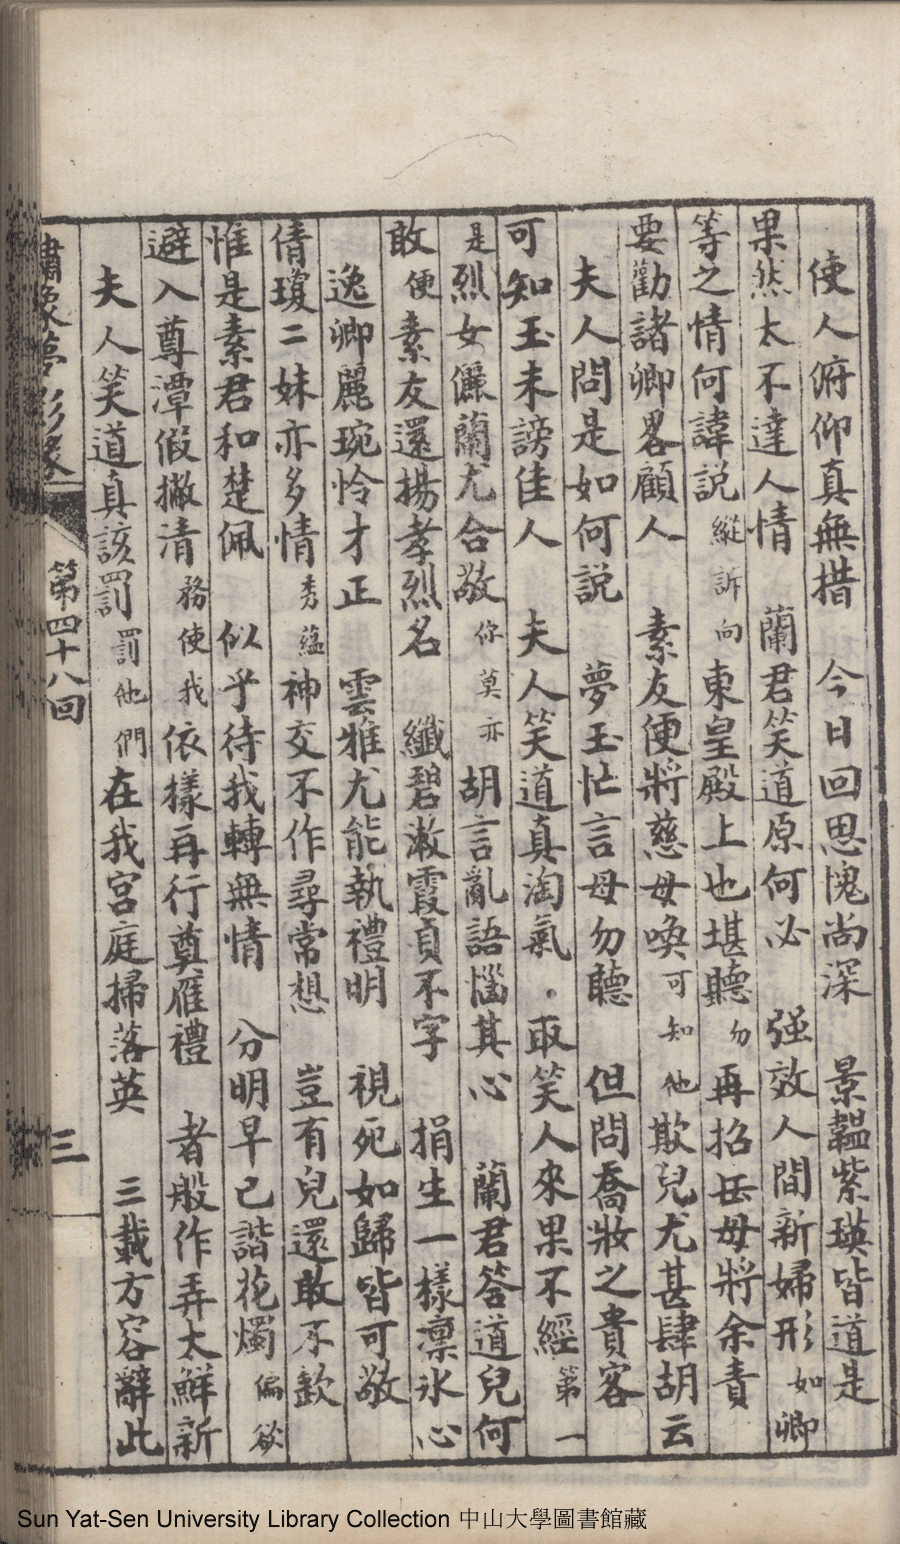 使人俯仰真無措　今日回思愧尚深　景韞紫瑛皆道是
果然太不達人情　蘭君笑道原何必　强效人間新婦形如卿
等之情何諱説縱訴向東皇殿上也堪聽勿再招岳母將余責
要勸諸卿畧顧人　素友便將慈母喚可知他欺兒尤甚肆胡云
夫人問是如何説　夢玉忙言母勿聽　但問喬妝之貴客
可知玉未謗佳人　夫人笑道真淘氣。取笑人來果不經第一
是烈女儷蘭尤合敬你莫亦胡言亂語惱其心　蘭君答道兒何
敢便素友還揚孝烈名　纖碧漱霞貞不字　捐生一樣凛氷心
逸卿麗琬怜才正　雲雅尤能執禮明　視死如歸皆可敬
倩瓊二妹亦多情秀蘊神交不作尋常想　豈有兒還敢不欽
惟是素君和楚佩　似乎待我轉無情　分明早已諧花燭偏欲
避入尊潭假撇清務使我依樣再行奠雁禮　者般作弄太鮮新
夫人笑道真該罰罰他們在我宫庭掃落英　三載方容辭此
夢影緣　第四十八回　三
Sun Yat-Sen University Library Collection 中山大學圖書館藏